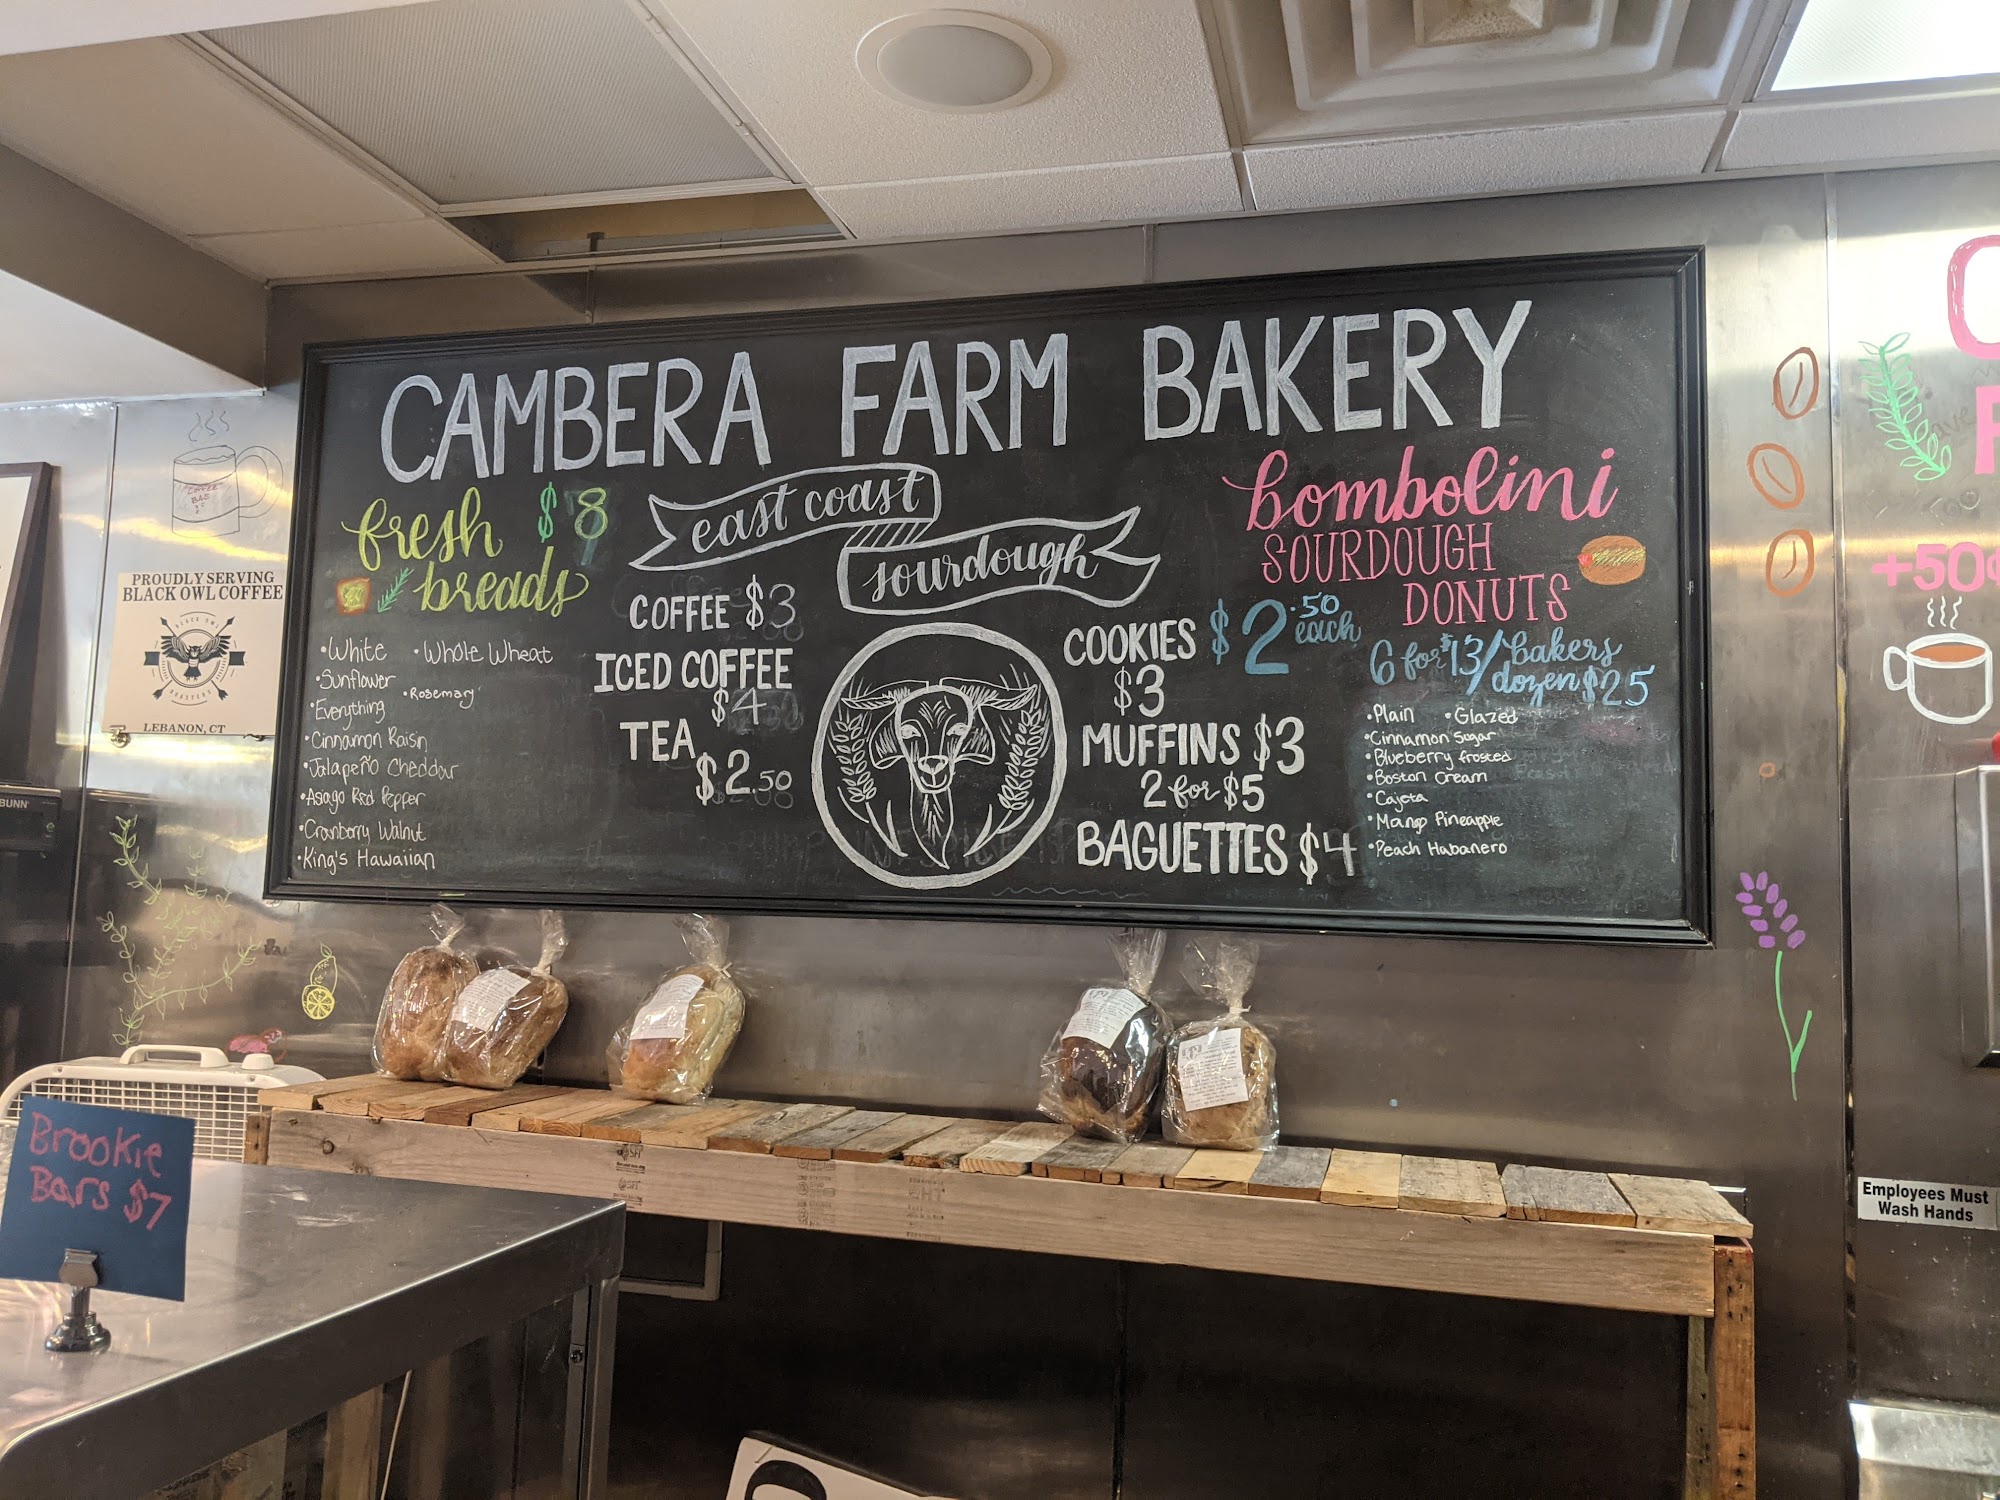 CAMBERA FARM BAKERY
fresh $8
breads
•White •Whole Wheat
•Sunflower
•Rosemary
•Everything
•Cinnamon Raisin
•Jalapeño Cheddar
•Asiago Red Pepper
•Cranberry Walnut
•King's Hawaiian
east coast
sourdough
COFFEE $3
ICED COFFEE
$4
TEA
$2.50
COOKIES
$3
MUFFINS $3
2 for $5
BAGUETTES $4
bombolini
SOURDOUGH
DONUTS
$2.50
each
6 for $13/bakers
dozen $25
•Plain •Glazed
•Cinnamon Sugar
•Blueberry frosted
•Boston Cream
•Cajeta
•Mango Pineapple
•Peach Habanero
PROUDLY SERVING
BLACK OWL COFFEE
BLACK OWL
ROASTERS
LEBANON, CT
BUNN
COFFEE
+50¢
Brookie
Bars $7
Employees Must
Wash Hands